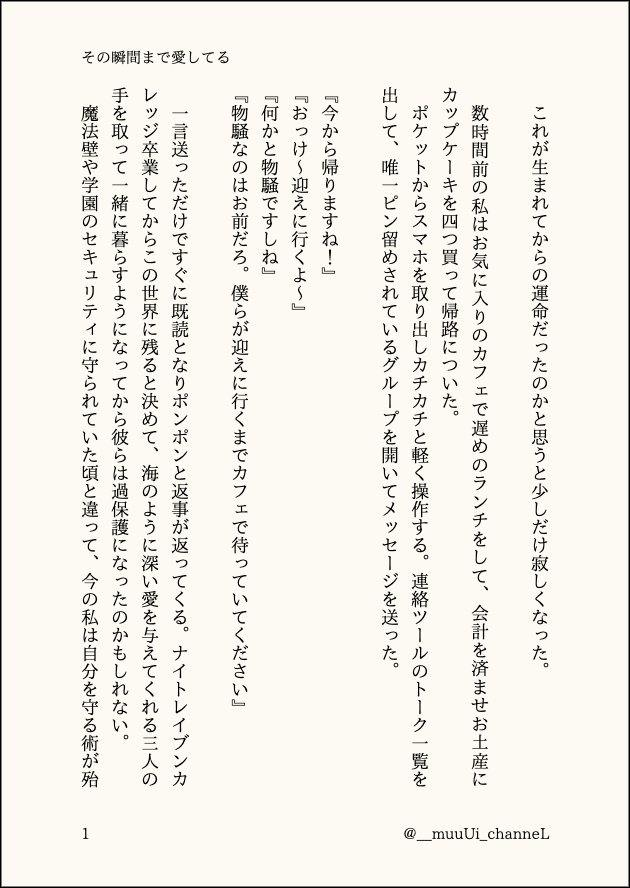 その瞬間まで愛してる
これが生まれてからの運命だったのかと思うと少しだけ寂しくなった。
数時間前の私はお気に入りのカフェで遅めのランチをして、会計を済ませお土産に
カップケーキを四つ買って帰路についた。
ポケットからスマホを取り出しカチカチと軽く操作する。連絡ツールのトーク一覧を
出して、唯一ピン留めされているグループを開いてメッセージを送った。
『今から帰りますね！』
『おっけ〜迎えに行くよ〜』
『何かと物騒ですしね』
『物騒なのはお前だろ。僕らが迎えに行くまでカフェで待っていてください』
一言送っただけですぐに既読となりポンポンと返事が返ってくる。ナイトレイブンカ
レッジ卒業してからこの世界に残ると決めて、海のように深い愛を与えてくれる三人の
手を取って一緒に暮らすようになってから彼らは過保護になったのかもしれない。
魔法壁や学園のセキュリティに守られていた頃と違って、今の私は自分を守る術が殆
1
@__muuUi_channeL